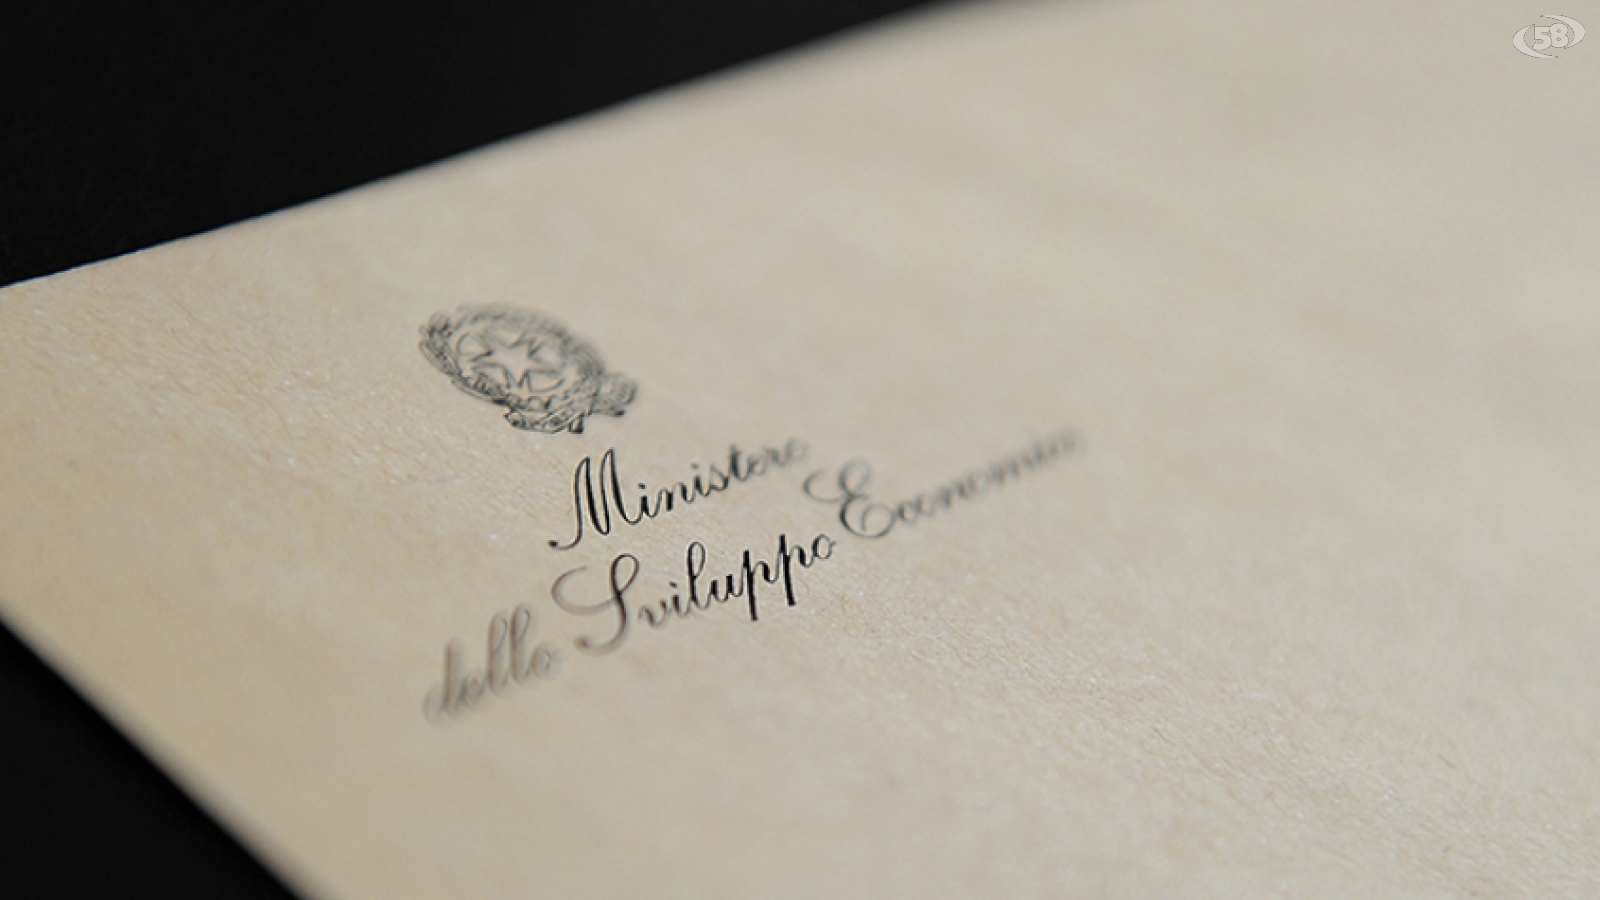 58
Ministero
dello Sviluppo Economico